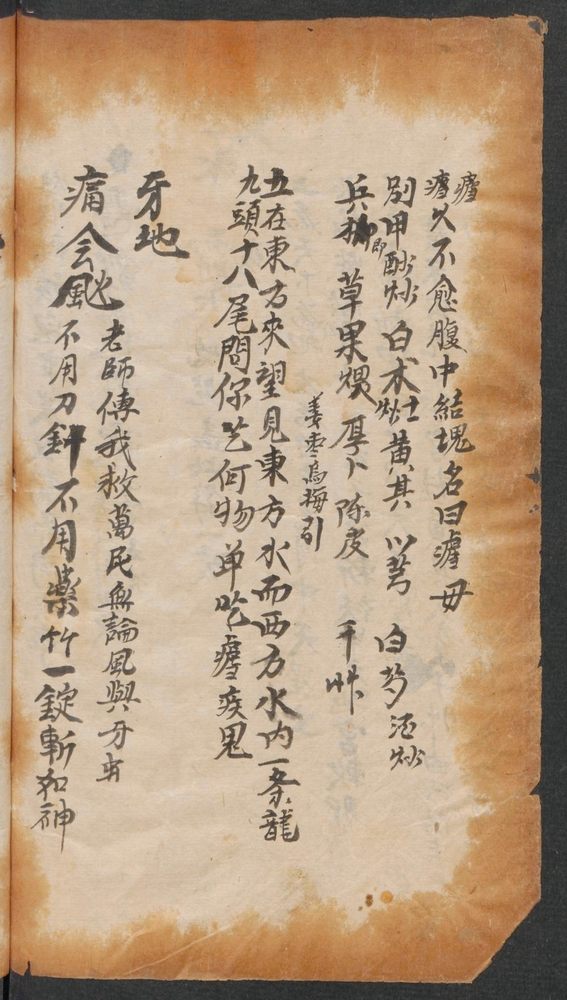 瘧
瘧久不愈腹中結塊名曰瘧母
別甲酥炒 白术灶 黄其 川芎 白芍酒炒
兵柳即 草果煨 厚卜 陈皮 干艸
姜枣烏梅引
五在東方來望見東方水而西方水内一条龍
九頭十八尾問你吃何物单吃瘧疾鬼
牙地
痛会風 不用刀針不用藥竹一錠斬和神
老師傳我救萬民無論風與牙虫